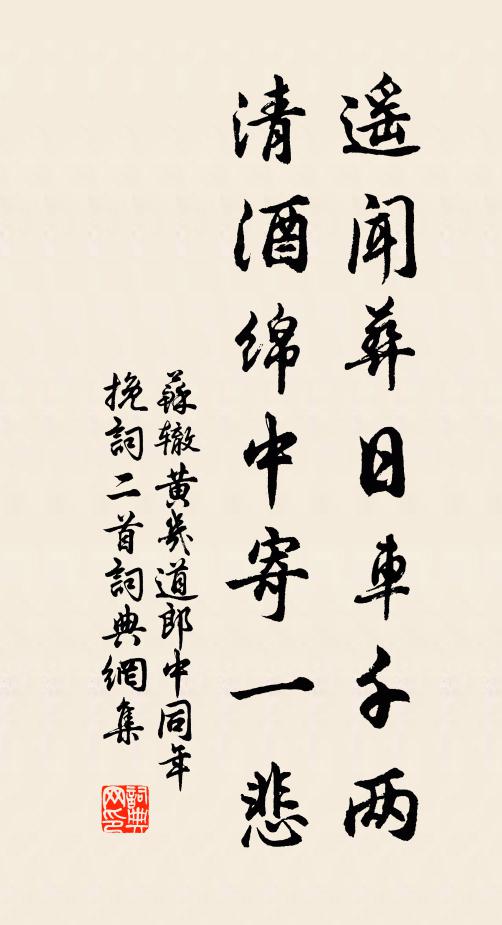 遥闻葬日车千两
清酒绵中寄一悲
蘇辙黄幾道郎中同年
挽詞二首詞典網集
詞典
网印